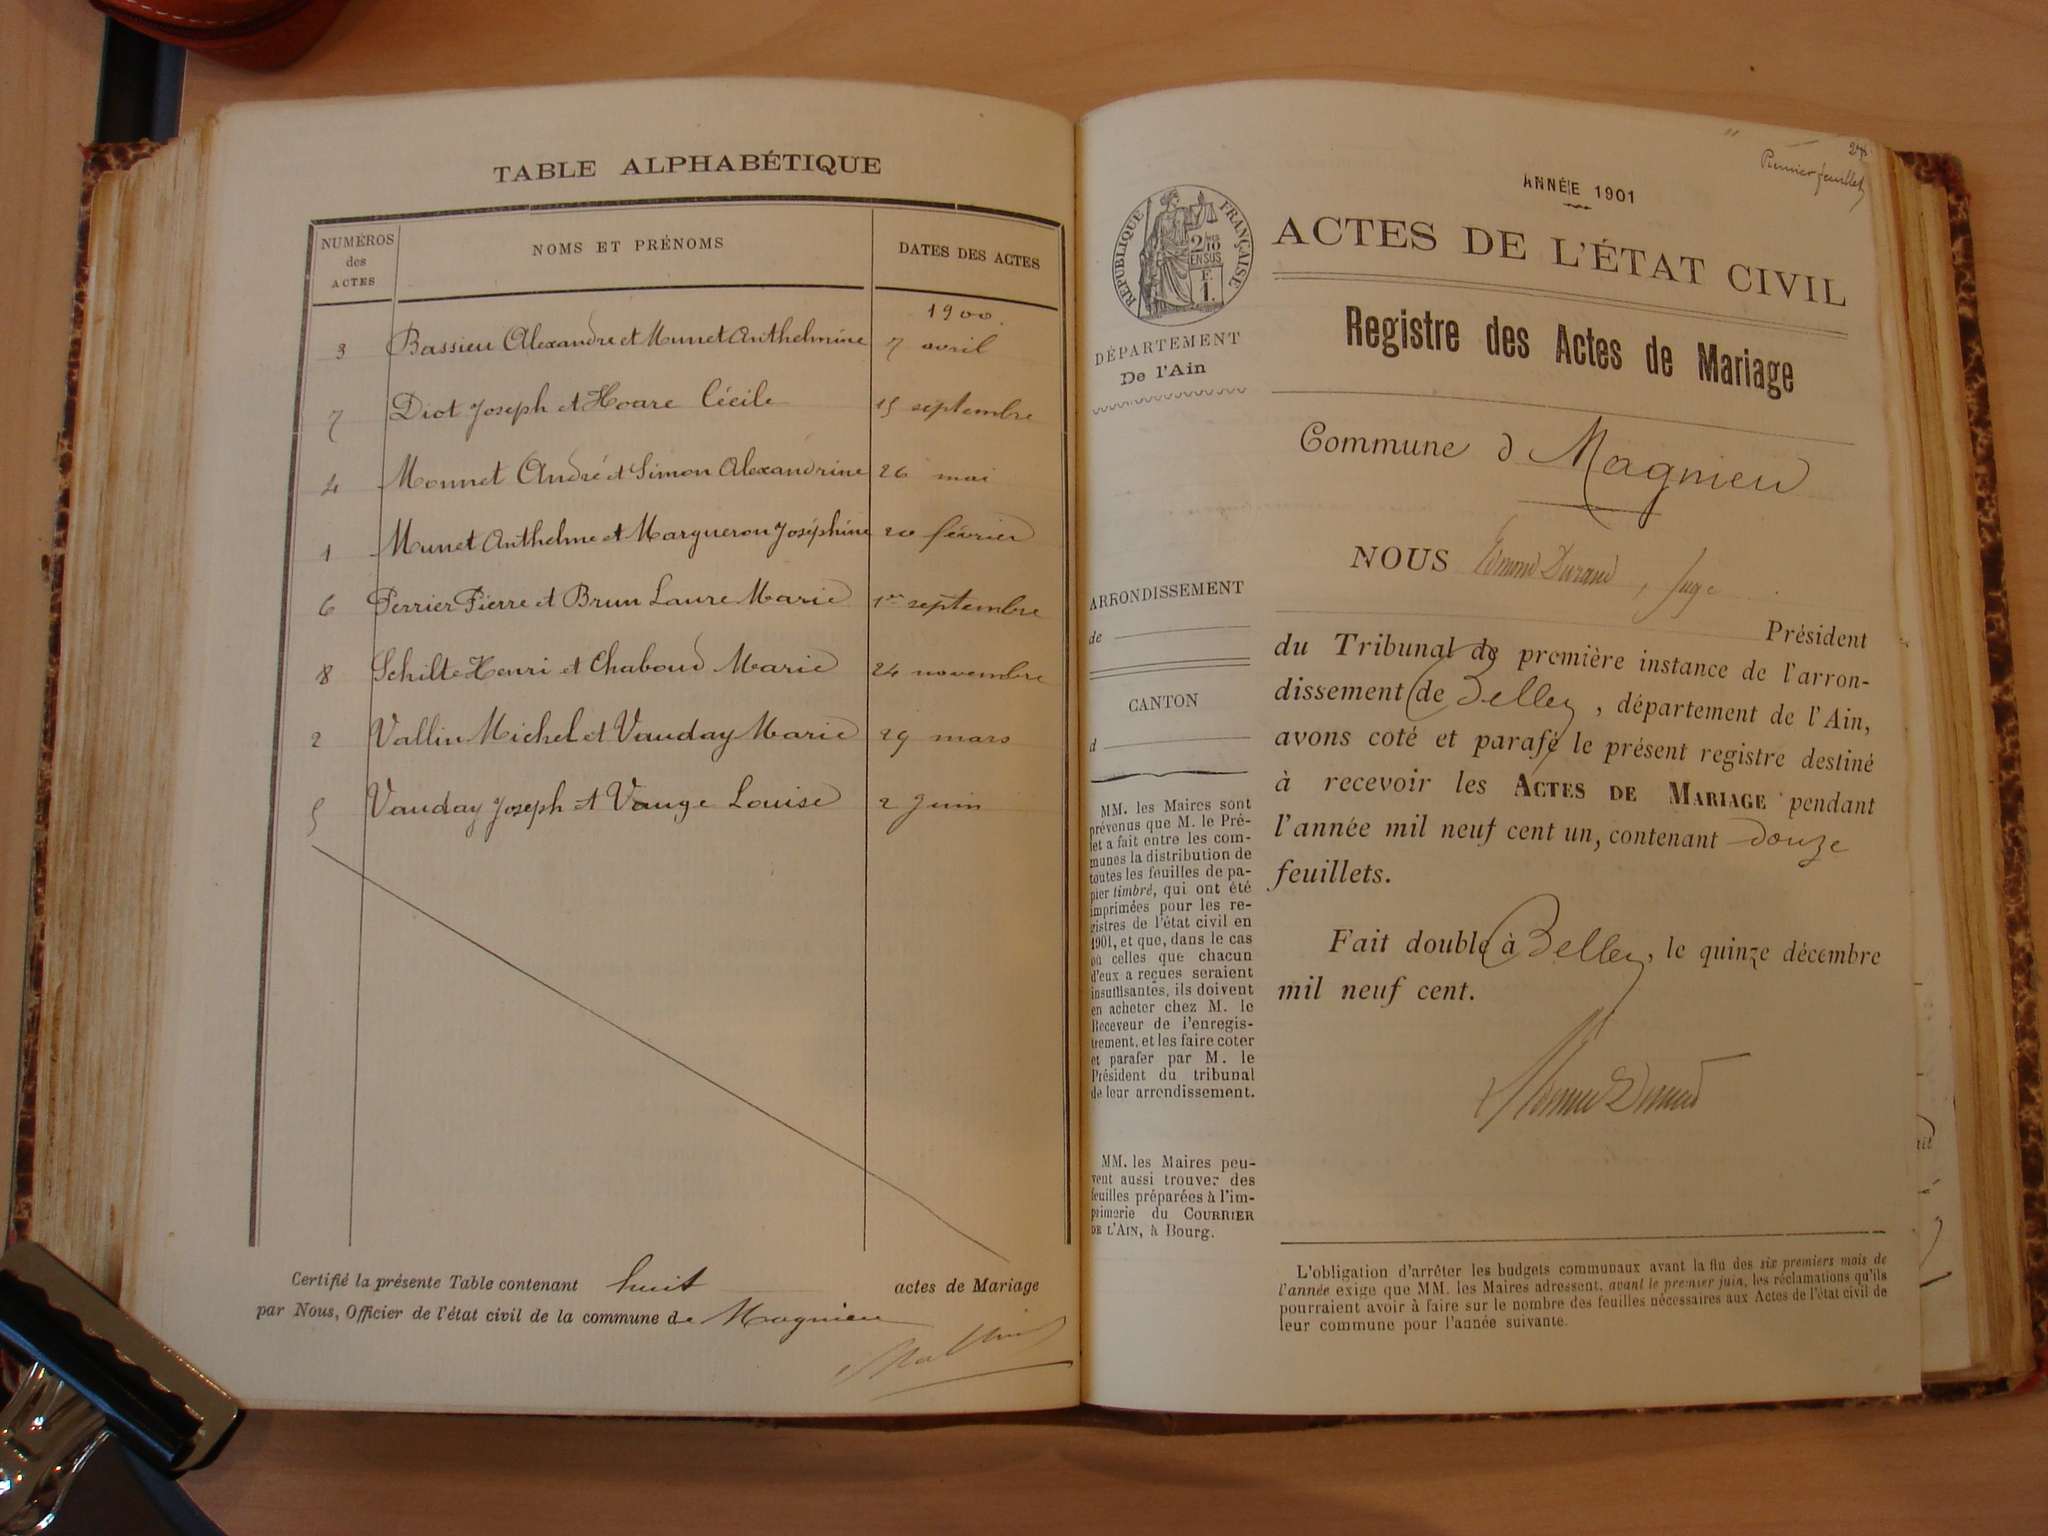 TABLE ALPHABÉTIQUE
NUMÉROS des ACTES NOMS ET PRÉNOMS DATES DES ACTES
1900.
3 Bassieu Alexandre et Munet Anthelmine 7 avril
7 Diot Joseph et Hoare Cécile 15 septembre
4 Monnet André et Simon Alexandrine 26 mai
1 Munet Anthelme et Margueron Joséphine 20 février
6 Perrier Pierre et Brun Laure Marie 1er septembre
8 Schilte Henri et Chaboud Marie 24 novembre
2 Vallin Michel et Vauday Marie 29 mars
5 Vauday Joseph et Vauge Louise 2 Juin
Certifié la présente Table contenant huit actes de Mariage
par Nous, Officier de l'état civil de la commune de Magnieu
Premier feuillet
ANNÉE 1901
ACTES DE L'ÉTAT CIVIL
RÉPUBLIQUE FRANÇAISE
2 10es
EN SUS
F.
1.
Registre des Actes de Mariage
DÉPARTEMENT
De l'Ain
Commune d Magnieu
NOUS Edmond Durand, Juge
Président
du Tribunal de première instance de l'arron-
dissement de Belley, département de l'Ain,
avons coté et parafé le présent registre destiné
à recevoir les ACTES DE MARIAGE pendant
l'année mil neuf cent un, contenant douze
feuillets.
Fait double à Belley, le quinze décembre
mil neuf cent.
Edmond Durand
ARRONDISSEMENT
de
CANTON
d
MM. les Maires sont
prévenus que M. le Pré-
fet a fait entre les com-
munes la distribution de
toutes les feuilles de pa-
pier timbré, qui ont été
imprimées pour les re-
gistres de l'état civil en
1901, et que, dans le cas
où celles que chacun
d'eux a reçues seraient
insuffisantes, ils doivent
en acheter chez M. le
Receveur de l'enregis-
trement, et les faire coter
et parafer par M. le
Président du tribunal
de leur arrondissement.
MM. les Maires peu-
vent aussi trouver des
feuilles préparées à l'im-
primerie du COURRIER
DE L'AIN, à Bourg.
L'obligation d'arrêter les budgets communaux avant la fin des six premiers mois de
l'année exige que MM. les Maires adressent, avant le premier juin, les réclamations qu'ils
pourraient avoir à faire sur le nombre des feuilles nécessaires aux Actes de l'état civil de
leur commune pour l'année suivante.